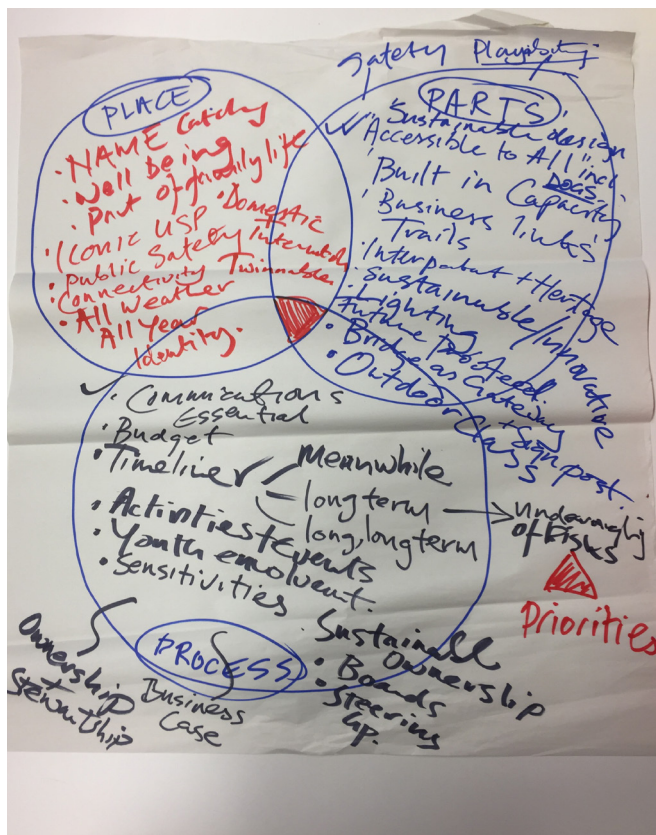 Safety Playability
PLACE
• NAME Catchy
• Well Being
Part of family life
• Iconic USP • Domestic
• Public Safety
• Connectivity Twinnable
• All Weather
All Year
Identity.
PARTS
• Sustainable design
Accessible to All incl
DOGS
Built in Capacity
Business links
Trails
Heritage
Sustainable/Innovative
• Lighting
Future proofed.
• Bridge as Gateway
+ Signpost.
• Outdoor Class
• Communications
Essential
• Budget
• Timeline
Meanwhile
long term
long, long term
of Risks
• Activities + events
• Youth envolvent.
• Sensitivities
Priorities
PROCESS
Ownership
+
Stewartship
Business
Case
Ownership
• Boards
• Steering
Gp.